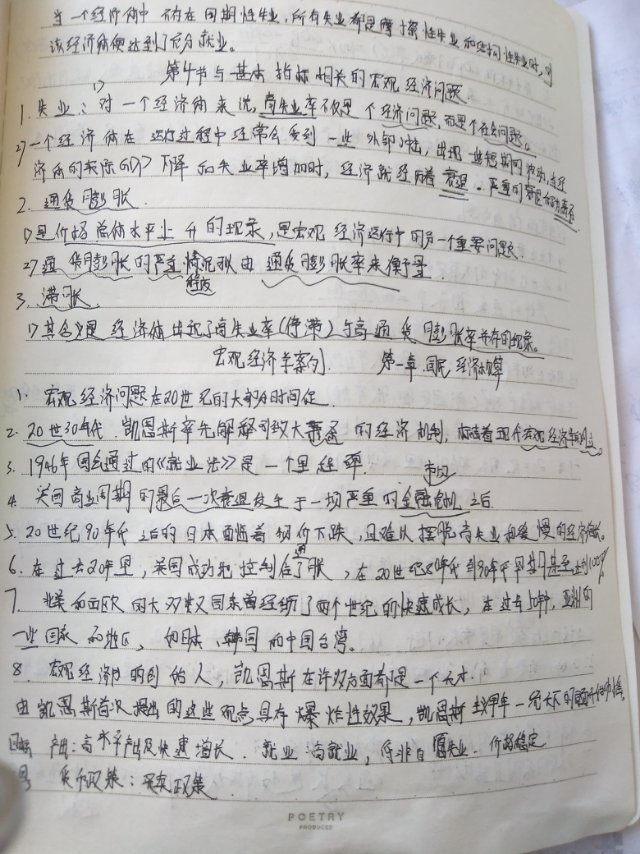 当一个经济体中不存在周期性失业,所有失业都是摩擦性失业和结构性失业时,则
该经济体便达到了充分就业。
第4节与基本指标相关的宏观经济问题
1. 失业:1)对一个经济体来说,高失业率不仅是个经济问题,而是个社会问题。
2)一个经济体在运行过程中经常会受到一些外部冲击,出现一些短期波动,当经
济体的实际GDP下降和失业率增加时,经济就经历着衰退。严重的衰退
2. 通货膨胀.
1)是价格总体水平上升的现象,是宏观经济运行中的另一个重要问题.
2)通货膨胀的严重情况程度 由通货膨胀率来衡量
3. 滞胀
1)其含义是经济体出现了高失业率(停滞)与高通货膨胀率并存的现象。
宏观经济学案例. 第一章.国民经济核算
1. 宏观经济问题在20世纪的大部分时间
2. 20世30年代.凯恩斯率先解释导致大萧条的经济机制,标志着现代宏观经济学的
3. 1946年国会通过的《就业法》是一个里程碑.
4. 美国商业周期的最后一次衰退发生于一场严重的金融危机之后 市场
5. 20世纪90年代之后的日本面临着物价下跌,且难以摆脱高失业和缓慢的经济
6. 在过去20年里,美国成功地控制住了通胀,在20世纪80年代到90年代 甚至达到100%
7. 北美和西欧的大多数国家曾经历了两个世纪的快速成长,在过去 年,亚洲的
一些国家和地区,如日本、韩国和中国台湾。
8. 宏观经济学的创始人,凯恩斯在许多方面都是一个天才.
由凯恩斯首次提出的这些观点具有爆炸性效果,凯恩斯
目标 产出:高水平产出及快速增长. 就业 高就业,低非自愿失业. 价格稳定
货币政策:买卖政策
POETRY
PRODUCED